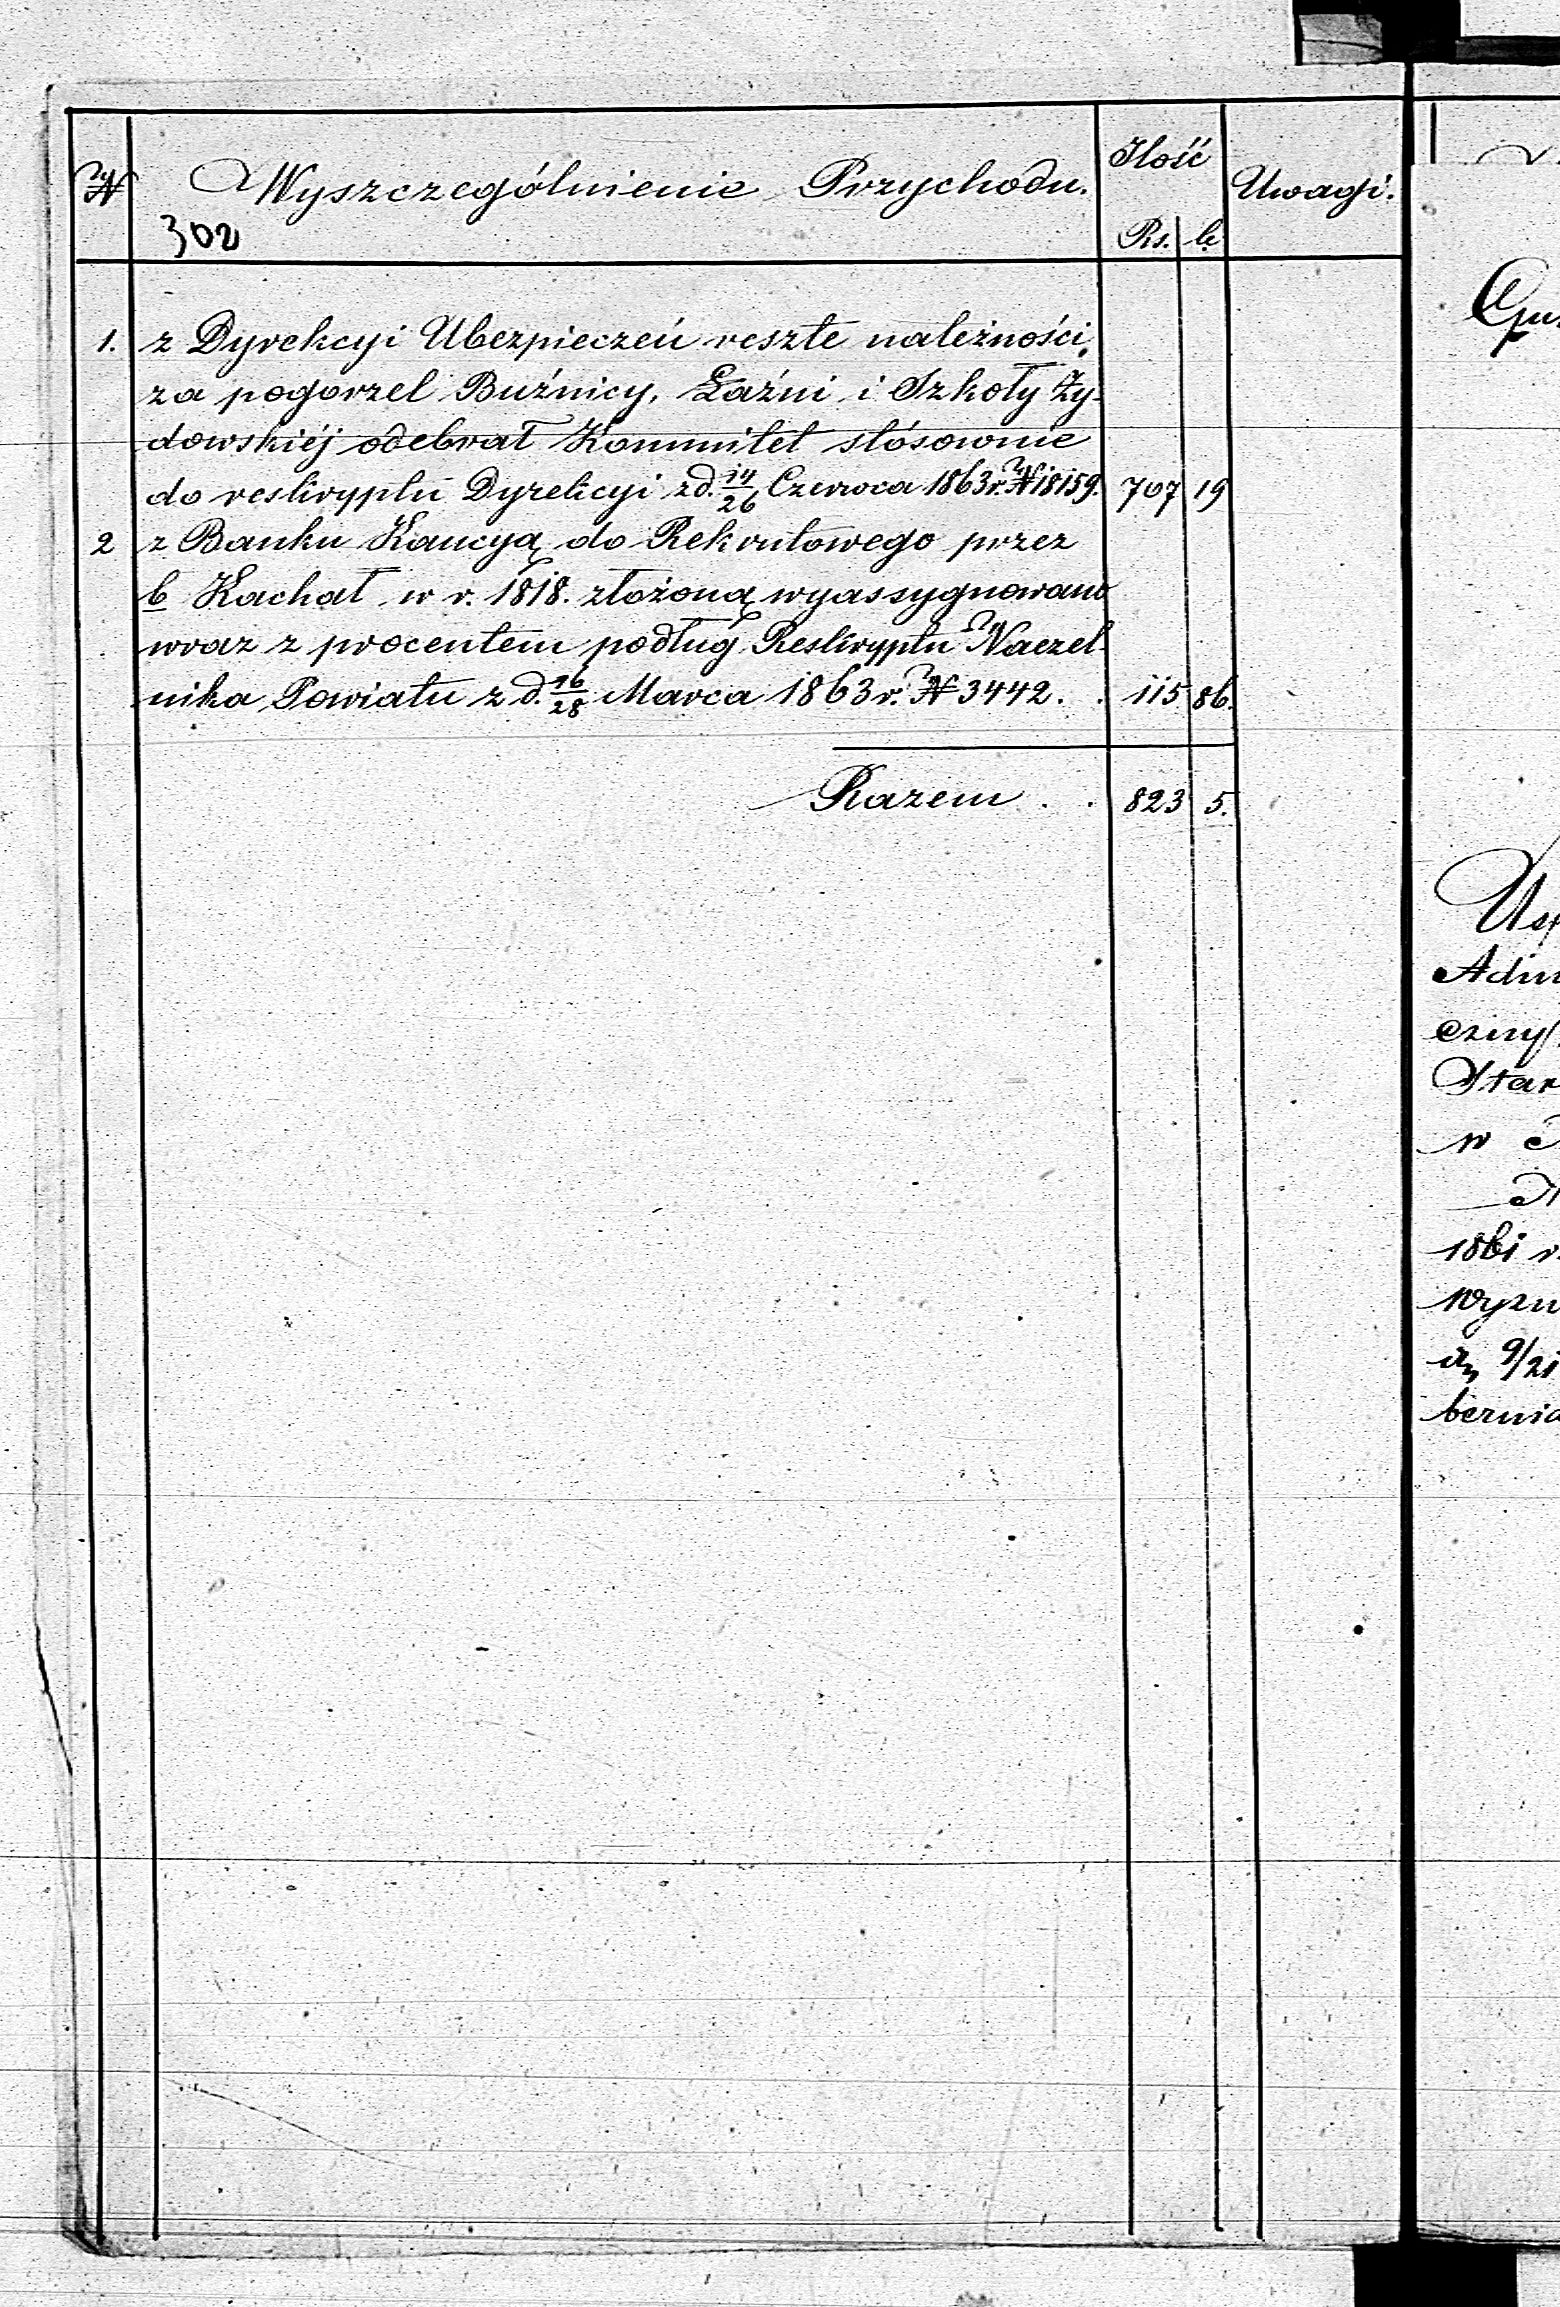 № Wyszczególnienie Przychodu. Ilość Uwagi.
302 Rs. k.
1. z Dyrekcyi Ubezpieczeń resztę należności
za pogorzel Buźnicy, Łaźni i Szkoły Ży-
dowskiéj odebrał Kommitet stósownie
do reskryptu Dyrekcyi z d. 14/26 Czerwca 1863 r. № 18159. 707 19
2 z Banku Kaucyą do Rekrutowego przez
b Kachał w r. 1818. złożoną wyassygnowano
wraz z procentem podług Reskryptu Naczel-
nika Powiatu z d. 16/28 Marca 1863 r. № 3442. . 115 86.
Razem . . 823 5.
Adm
Star
w
1861 r.
wyzn
9/21
bernia